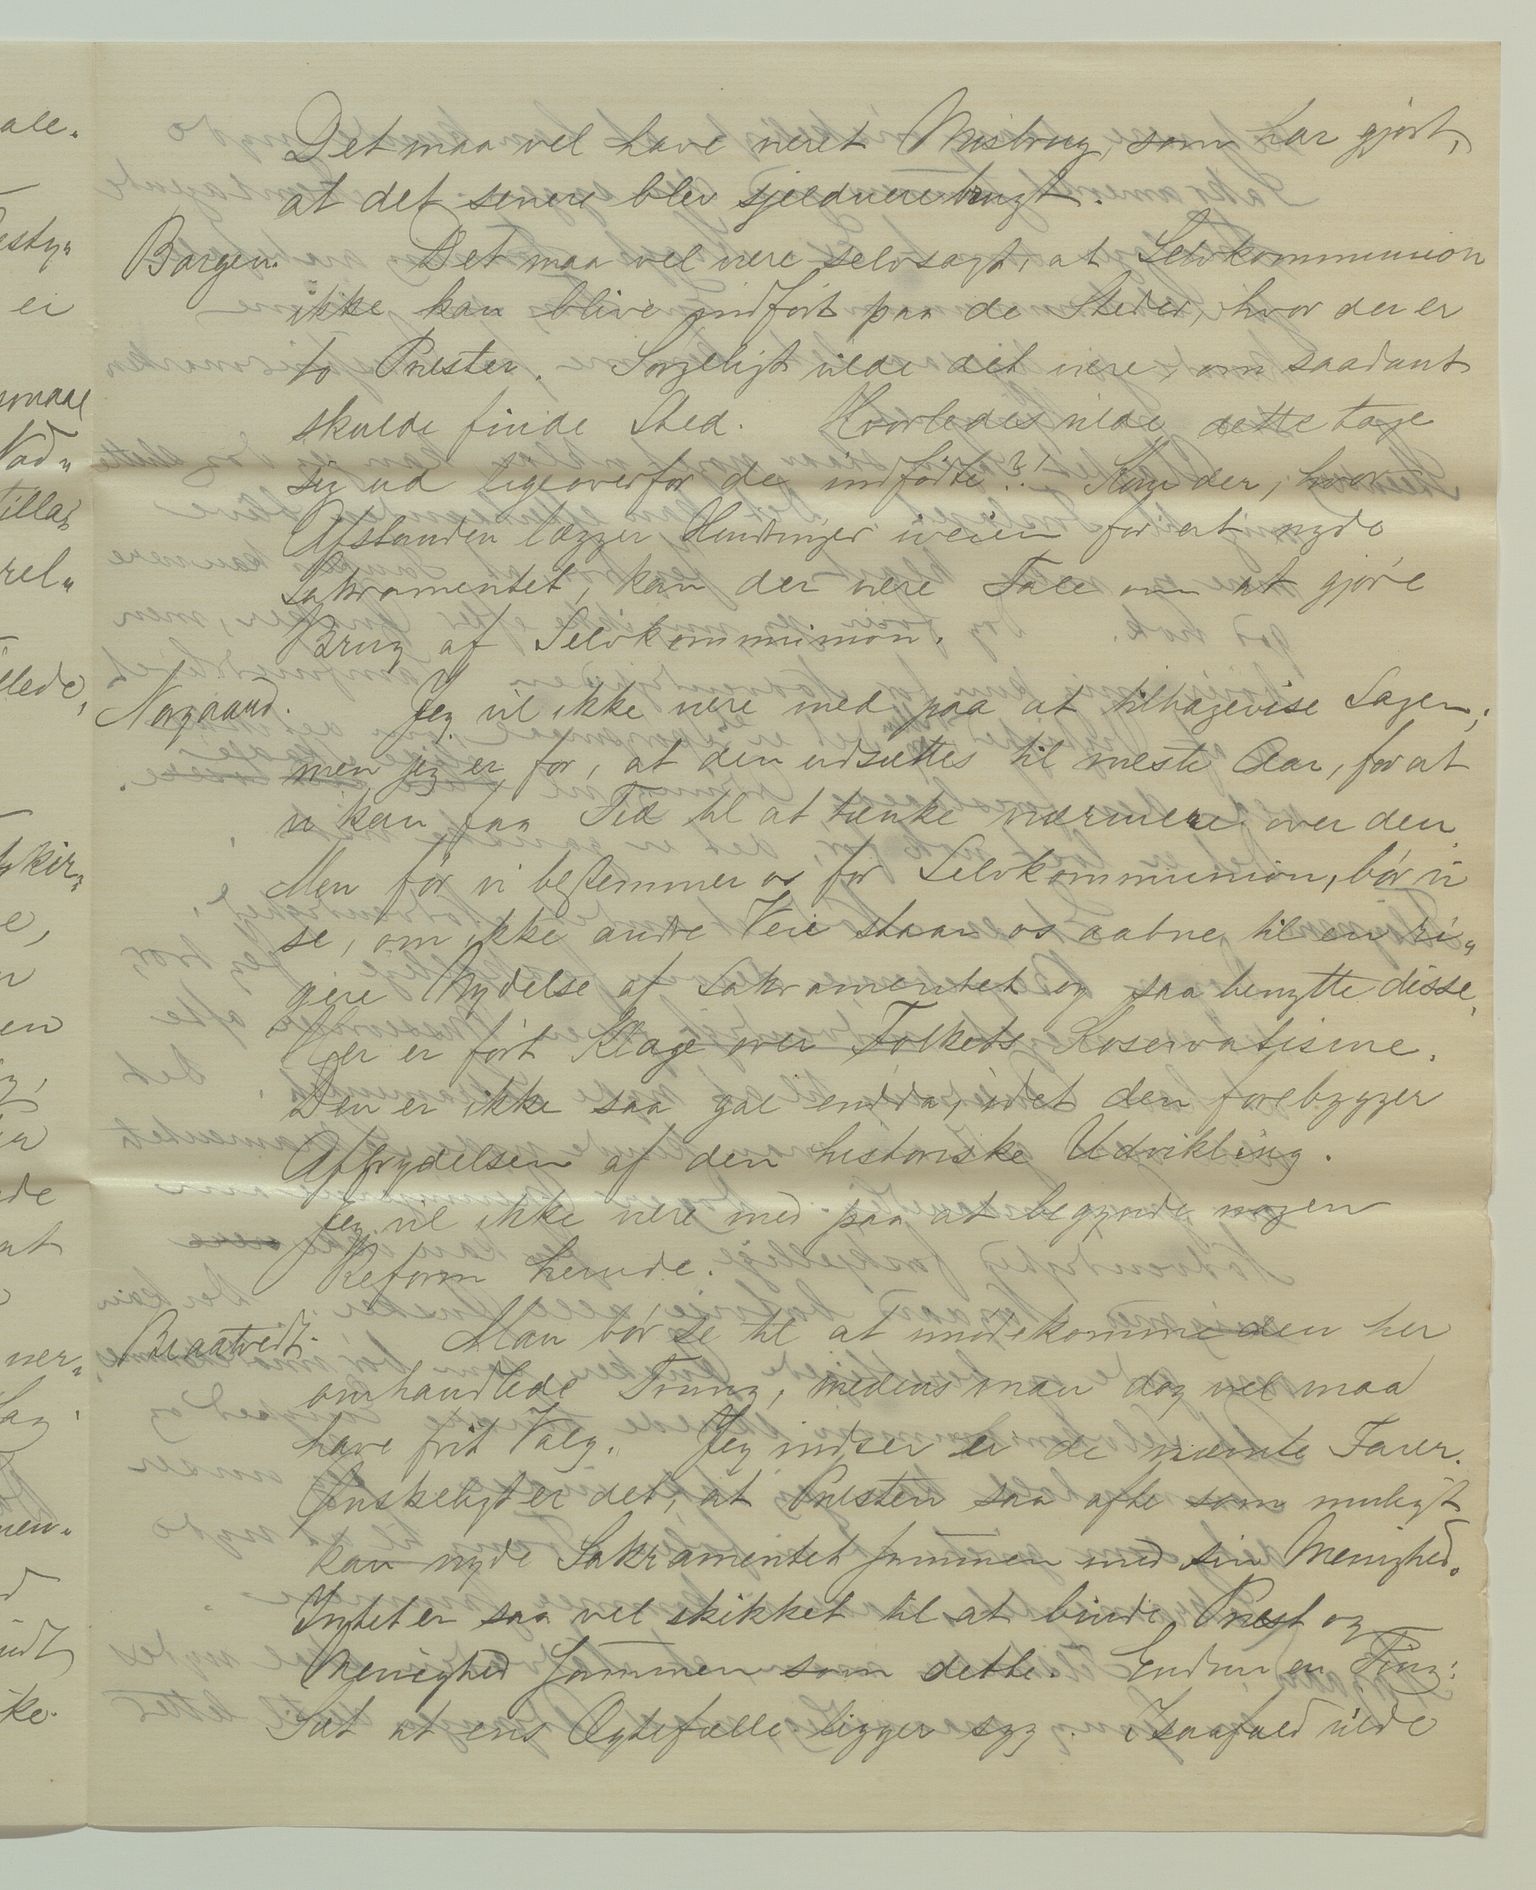 Det maa vel have været Misbrug, som har gjort,
at det senere blev sjeldnere brugt.
Borgen. Det maa vel være selvsagt, at Selvkommunion
ikke kan blive indført paa de Steder, hvor der er
to Prester. Sørgeligt vilde det være, om saadant
skulde finde Sted. Hvorledes vilde dette tage
sig ud ligeoverfor de indfødte?! Kun der, hvor
Afstanden lægger Hindringer iveien for at nyde
Sakramentet, kan der være Tale om at gjøre
Brug af Selvkommunion.
Norgaard. Jeg vil ikke være med paa at tilbagevise Sagen;
men jeg er for, at den udsættes til næste Aar, for at
vi kan faa Tid til at tænke nærmere over den.
Men før vi bestemmer os for Selvkommunion, bør vi
se, om ikke andre Veie staar os aabne til en ri„
gere Nydelse af Sakramentet og saa benytte disse.
Her er ført Klage over Folkets Koservatisme.
Den er ikke saa gal endda, idet den forebygger
Afbrydelsen af den historiske Udvikling.
Jeg vil ikke være med paa at begynde nogen
Reform herude.
Braatvedt. Man bør se til at imødekomme den her
omhandlede Trang, medens man dog vel maa
have frit Valg. Jeg indser er de nævnte Farer.
Ønskeligt er det, at Presten saa ofte som muligt
kan nyde Sakramentet sammen med sin Menighed.
Intet er saa vel skikket til at binde Prest og
Menighed sammen som dette. Endnu en Ting:
Sæt at ens Ægtefælle ligger syg. Isaafald vilde